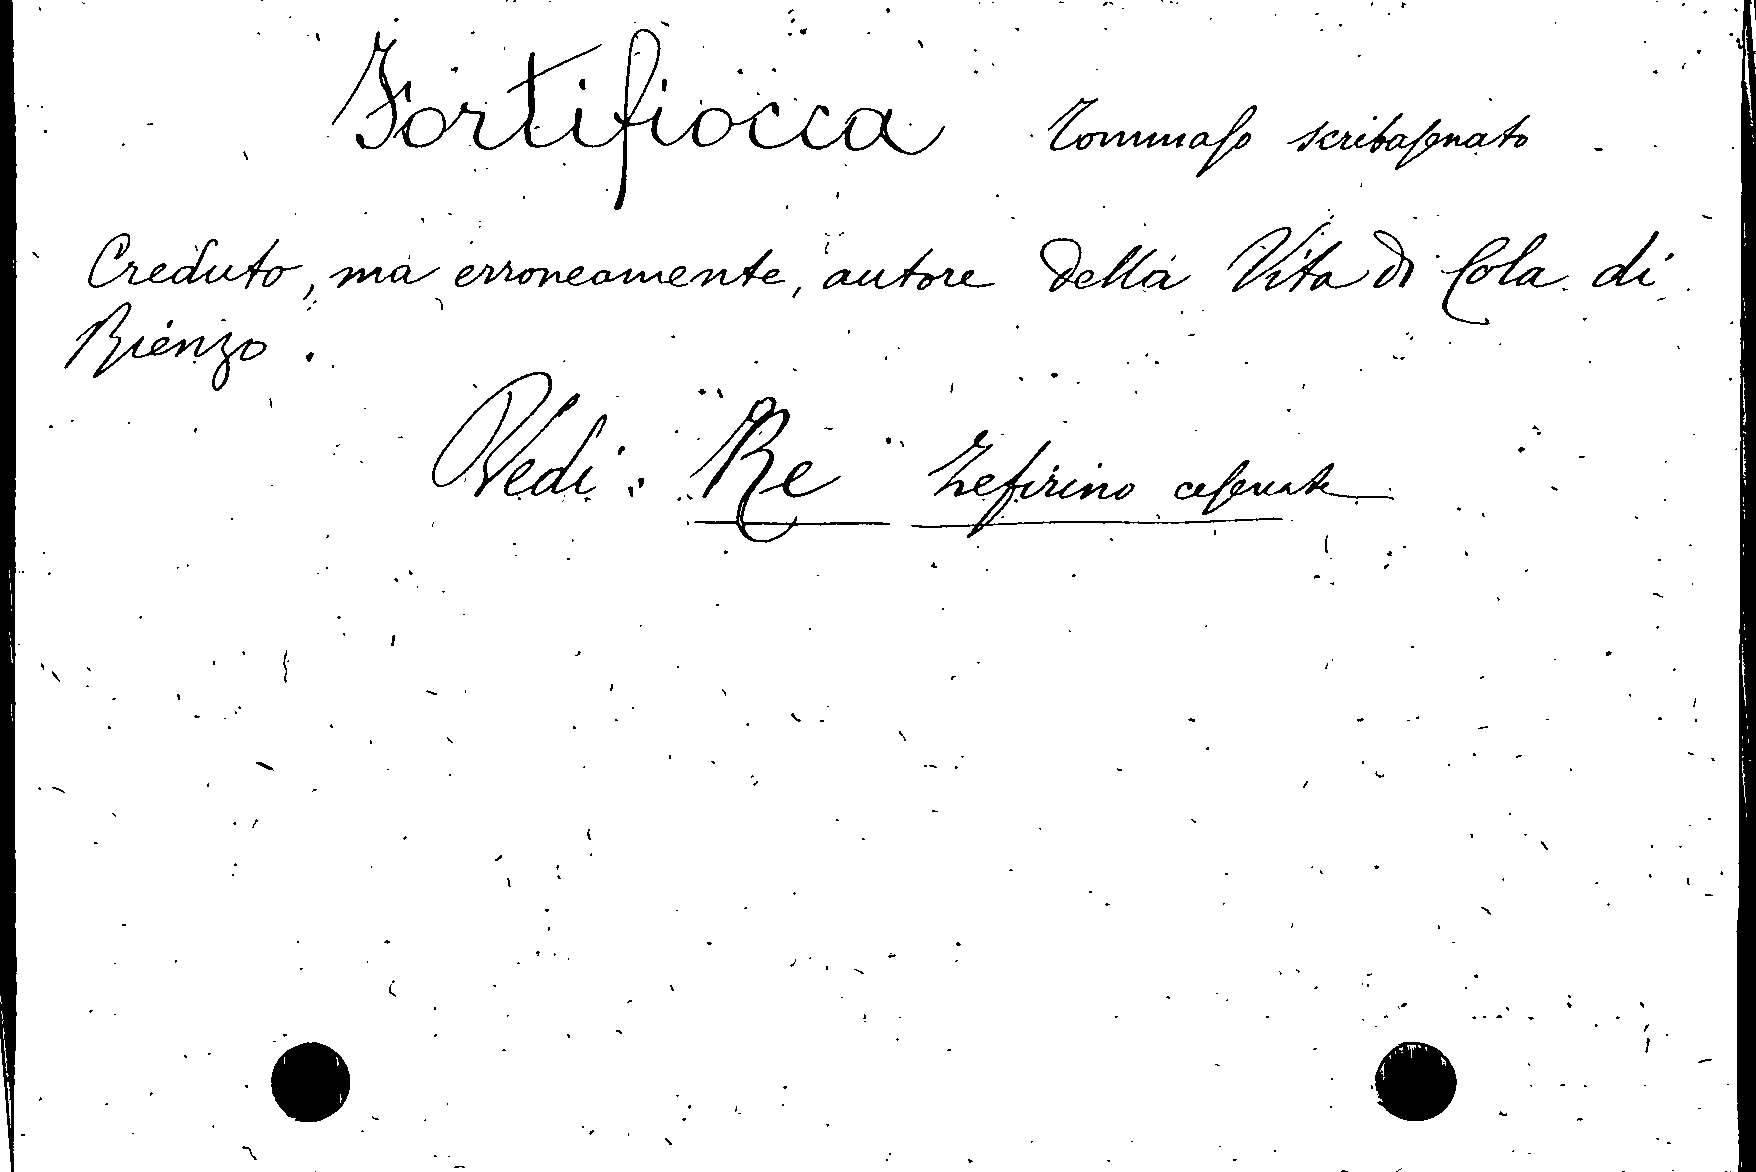 Fortifiocca Tommaso scribasenato
Creduto, ma erroneamente, autore della Vita di Cola di
Rienzo.
Vedi: Re Zefirino cesenate